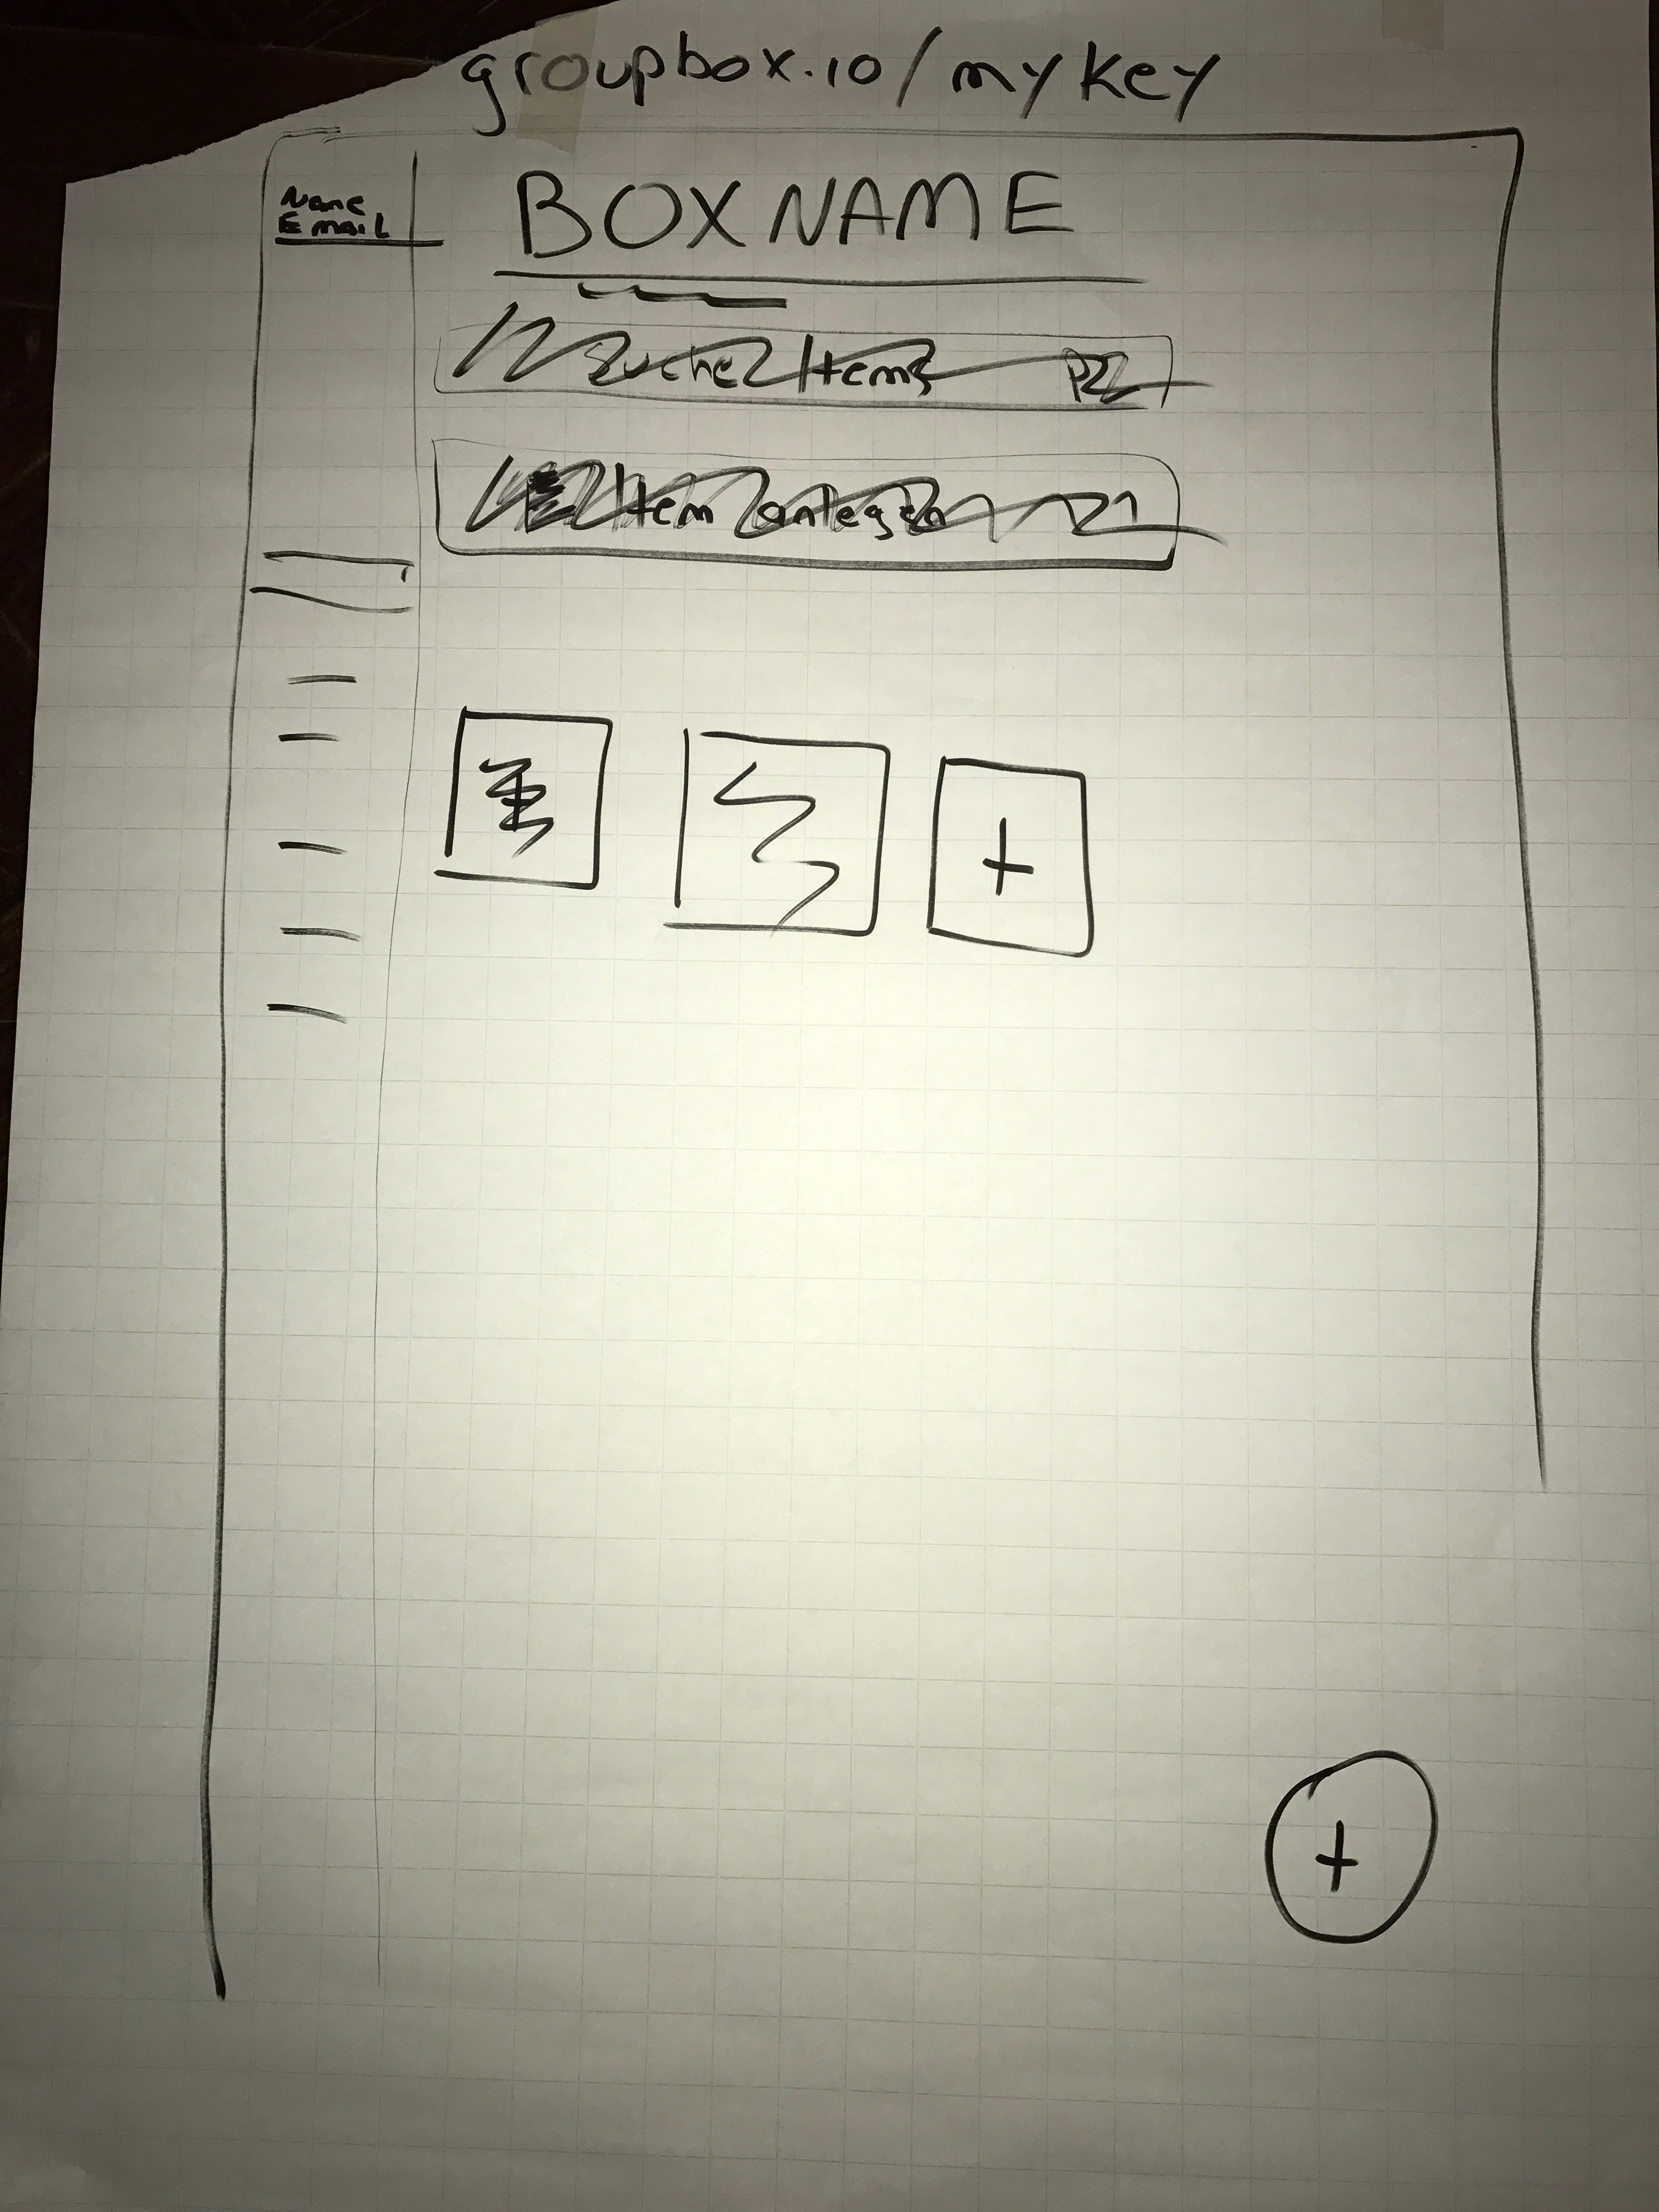 groupbox.io/mykey
Name
Email
BOXNAME
Suche Items P2
Item anlegen P1
+
+